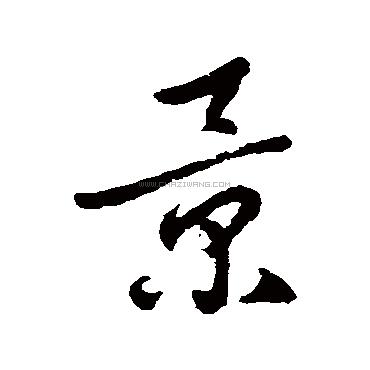 景
WWW.CHAZIWANG.COM